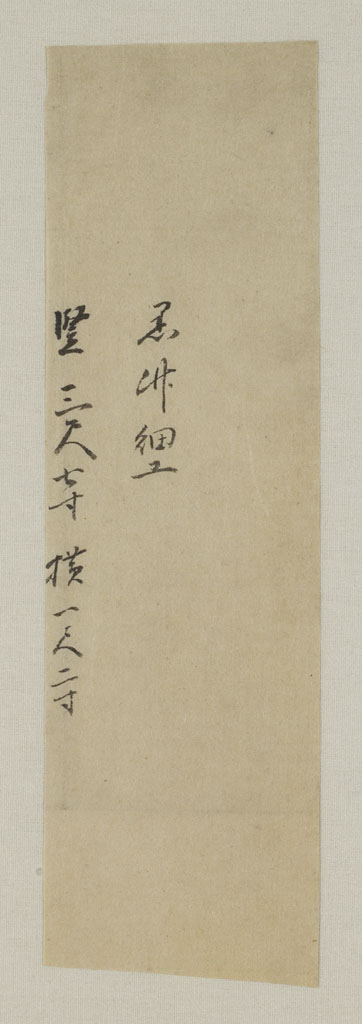 黒竹細工
竪三尺七寸横一尺二寸